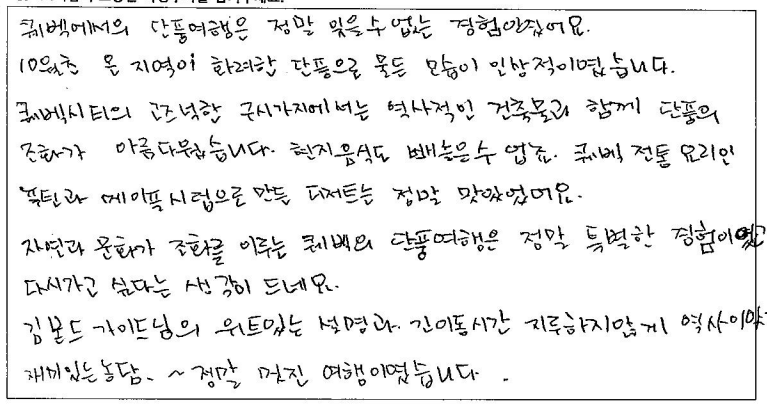 퀘벡에서의 단풍여행은 정말 잊을수없는 경험이었어요.
10월초 온 지역이 화려한 단풍으로 물든 모습이 인상적이였습니다.
퀘벡시티의 고즈넉한 구시가지에서는 역사적인 건축물과 함께 단풍의
조화가 아름다웠습니다. 현지음식도 빼놓을수 없죠. 퀘벡 전통 요리인
푸틴과 메이플시럽으로 만든 디저트는 정말 맛있었어요.
자연과 문화가 조화를 이루는 퀘벡의 단풍여행은 정말 특별한 경험이였고
다시가고 싶다는 생각이 드네요.
김본드 가이드님의 위트있는 설명과. 긴이동시간 지루하지않게 역사이야
재미있는농담. ~ 정말 멋진 여행이였습니다.